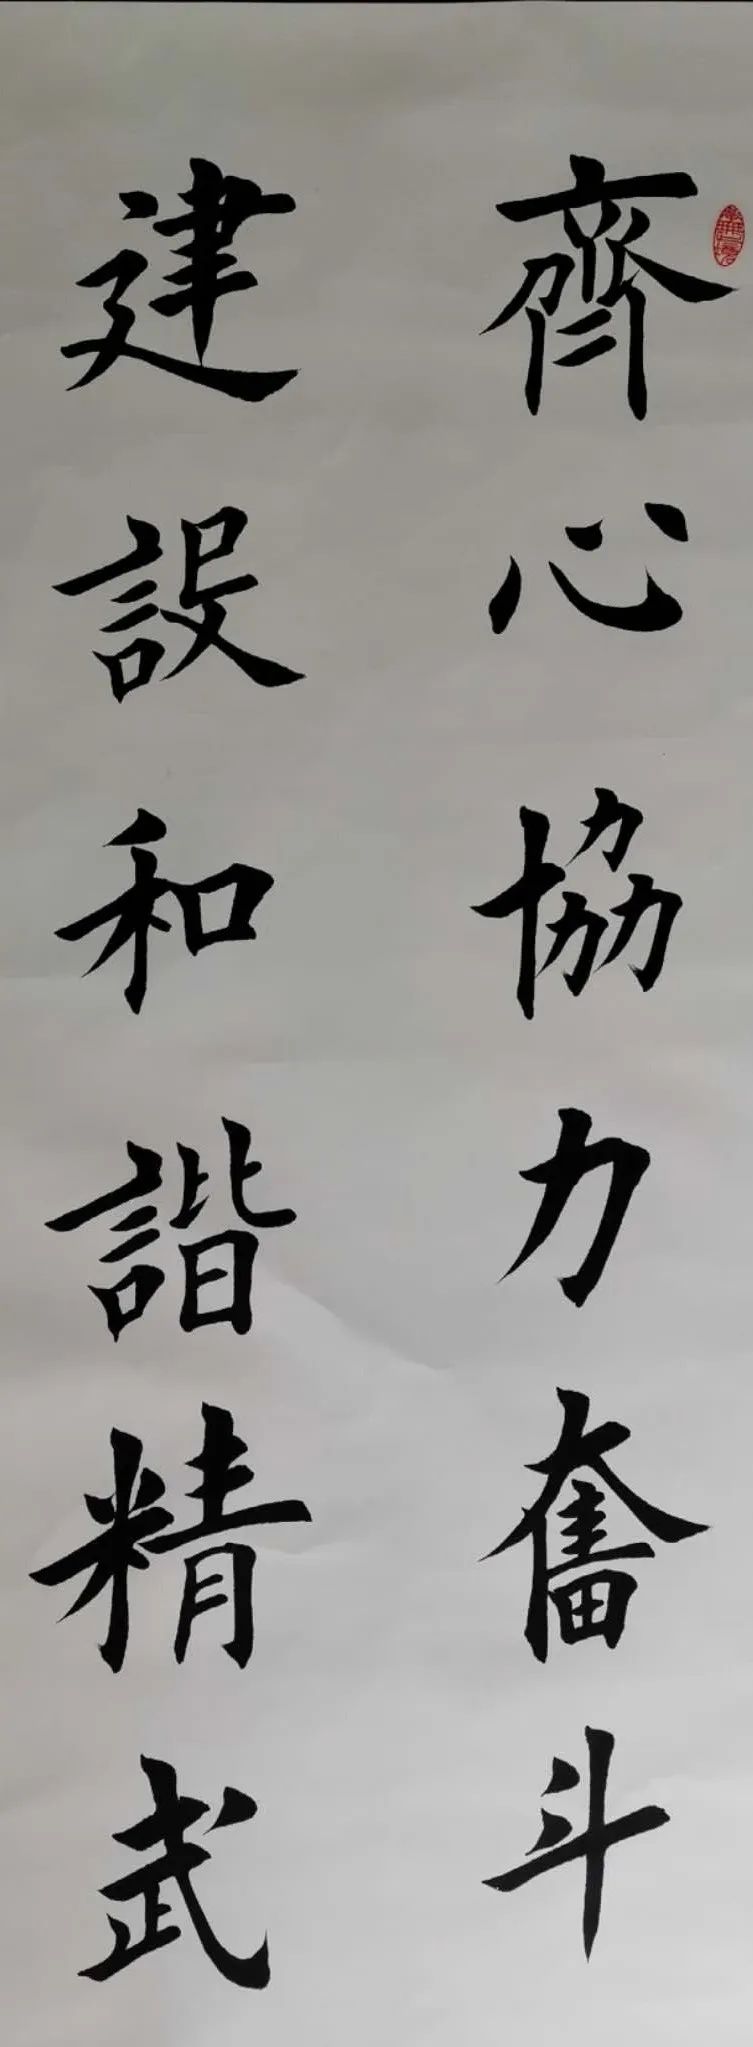 齊心協力奮斗
建設和諧精武